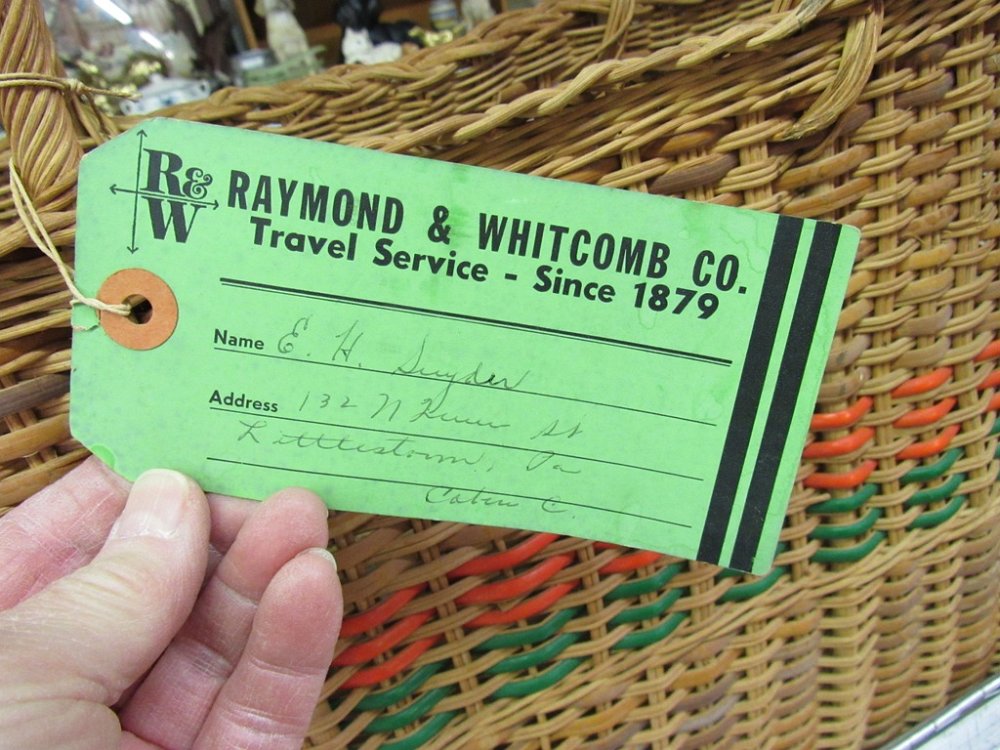 R&
W
RAYMOND & WHITCOMB CO.
Travel Service - Since 1879
Name E. H. Snyder
Address 132 N St
Littlestown, Pa
C.